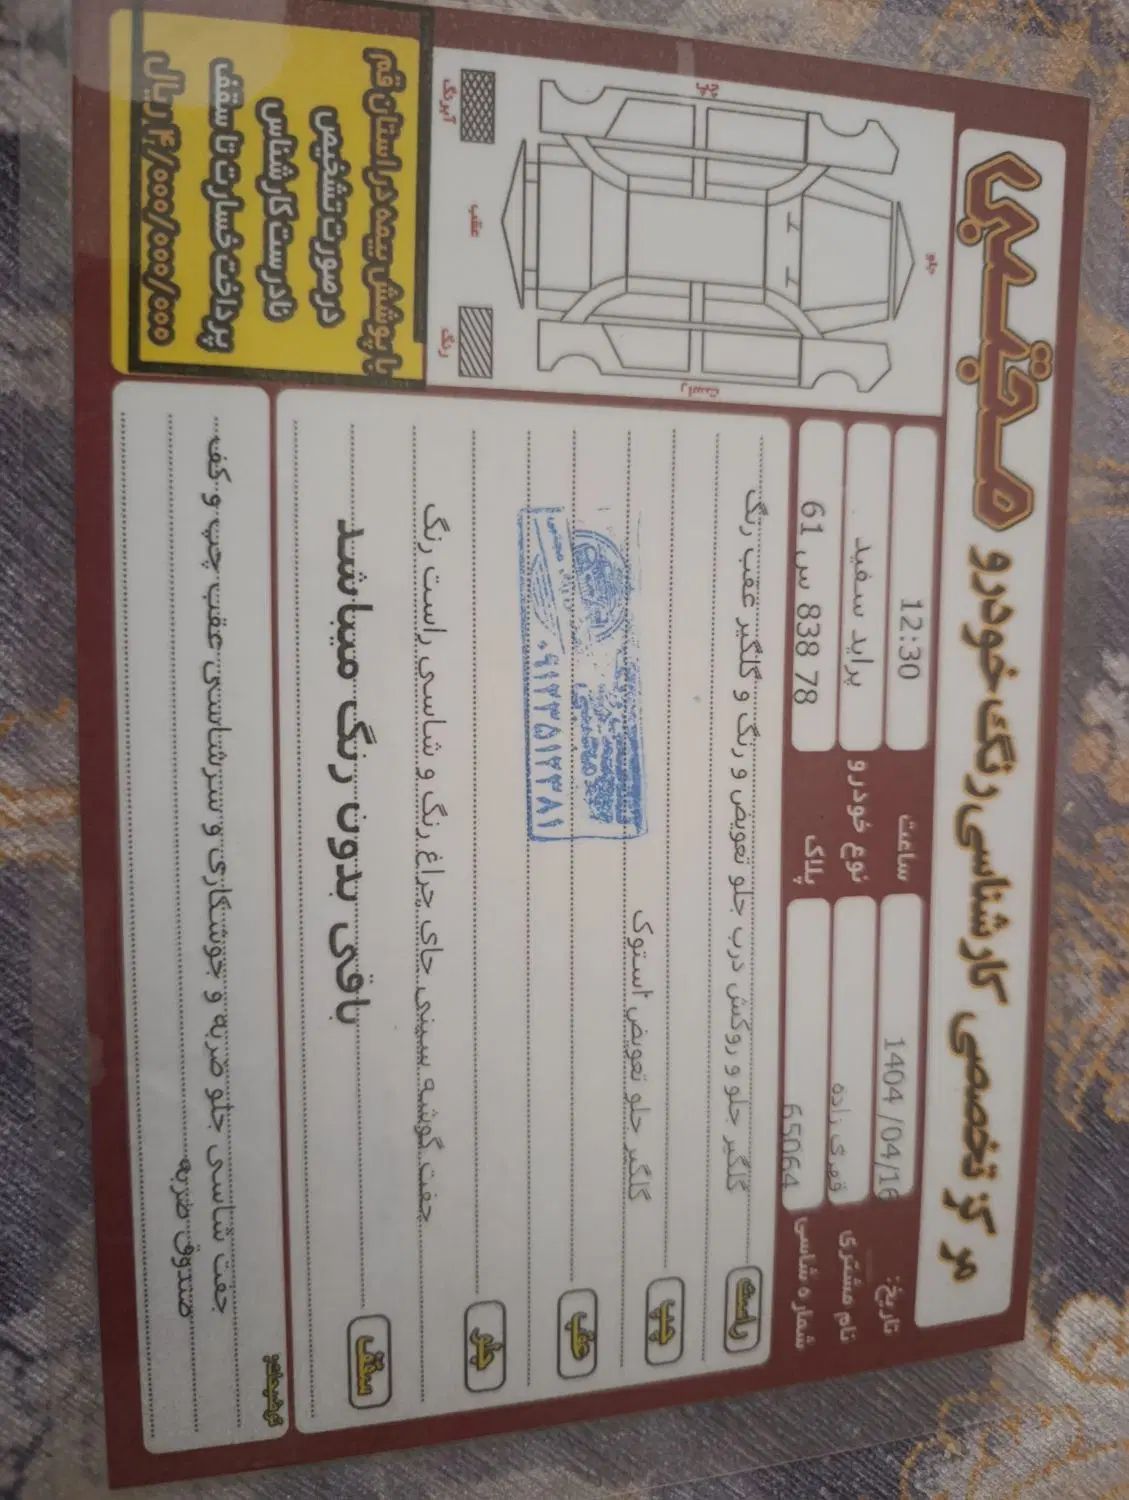 مرکز تخصصی کارشناسی رنگ خودرو مجتبی
تاریخ: 1404 /04/16
ساعت 12:30
نام مشتری قمری زاده
نوع خودرو پراید سفید
شماره شاسی 65064
پلاک 61 س 838 78
جلو
چپ
راست
عقب
آبرنگ
رنگ
با پوشش بیمه در استان قم
در صورت تشخیص
نادرست کارشناس
پرداخت خسارت تا سقف
۴/۰۰۰/۰۰۰/۰۰۰ ریال
راست گلگیر جلو و روکش درب جلو تعویض و رنگ و گلگیر عقب رنگ
چپ گلگیر جلو تعویض استوک
عقب
جلو جفت گوشه سینی جای چراغ رنگ و شاسی راست رنگ
سقف باقی بدون رنگ میباشد
توضیحات:
جفت شاسی جلو ضربه و جوشکاری و سرشاسی عقب چپ و کف
صندوق ضربه
۰۹۱۲۲۵۱۲۲۸۱